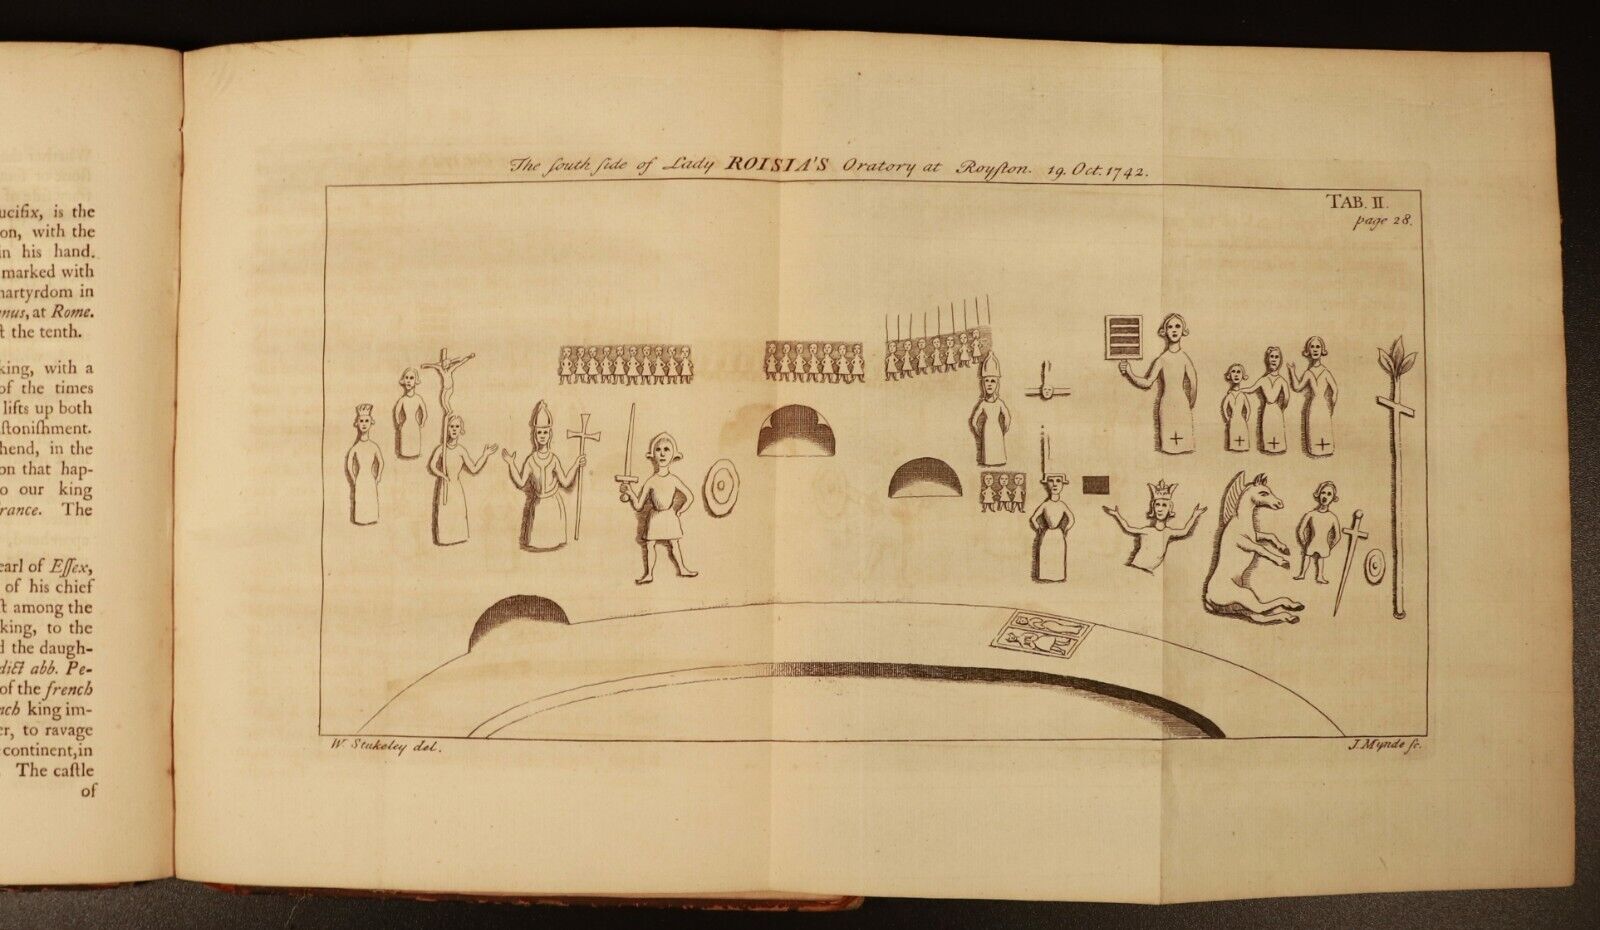 ucifix, is the
on, with the
in his hand.
marked with
martyrdom in
nus, at Rome.
ſt the tenth.
king, with a
of the times
lifts up both
ſtoniſhment.
hend, in the
on that hap-
o our king
rance. The
earl of Eſſex,
of his chief
ſt among the
king, to the
d the daugh-
dict abb. Pe-
of the french
nch king im-
er, to ravage
continent, in
The caſtle
of
The ſouth ſide of Lady ROISIA'S Oratory at Royſton. 19. Oct. 1742.
TAB. II.
page 28.
W. Stukeley del.
J. Mynde ſc.